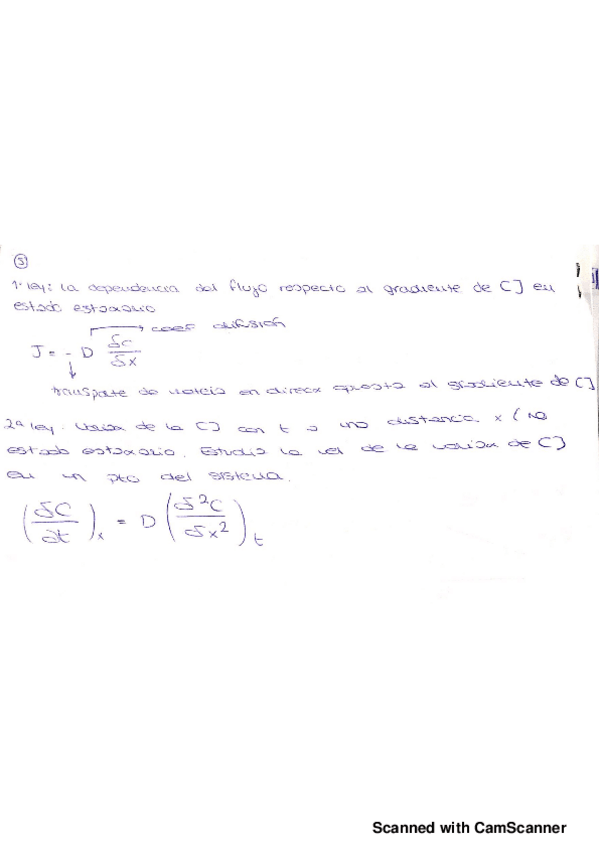 ⑤
1ª ley: la dependencia del flujo respecto al gradiente de [] en
estado estacionario
coef difusión
J = - D δc/δx
transporte de materia en direcx opuesta al gradiente de []
2ª ley. de la [] con t a una distancia x (no
estado estacionario. Estudia la vel de la de []
en un pto del sistema.
(δC/∂t)x = D (δ²C/δx²)t
Scanned with CamScanner